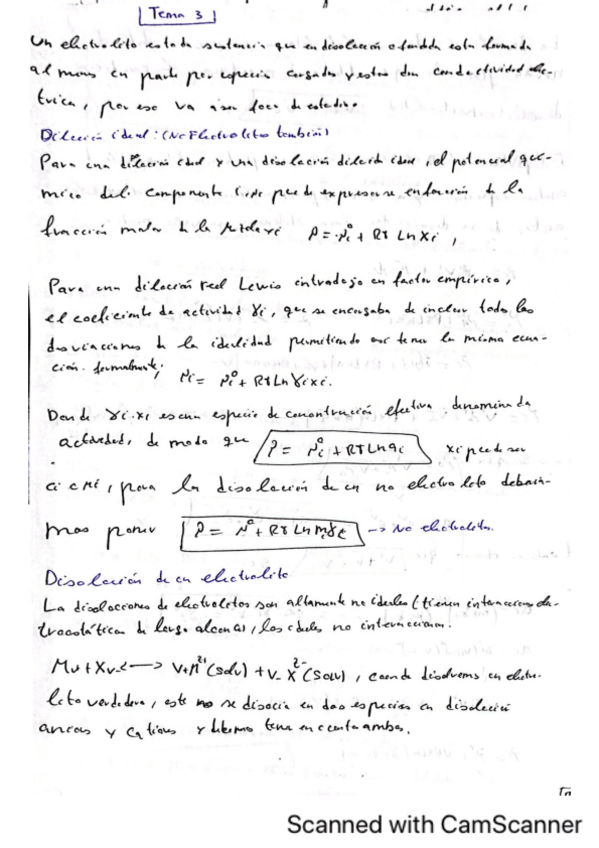 Tema 3
Un electrolito es toda sustancia que en disolución o fundida esta formada
al menos en parte por especies cargadas y estas dan conductividad eléc-
trica, por eso va a ser foco de estudio.
Dilución ideal: (No Electrolitos también)
Para una dilución ideal y una disolución diluida ideal, el potencial quí-
mico del componente i se puede expresarse en función de la
fracción molar de la mezcla xi μ = μi⁰ + RT Ln Xi,
Para una dilución real Lewis introdujo en factor empírico,
el coeficiente de actividad γi, que se encargaba de incluir todas las
desviaciones de la idealidad permitiendo así tener la misma ecua-
ción. formalmente; μi = μi⁰ + RT Ln γi xi.
Donde γi·xi es una especie de concentración efectiva, denominada
actividad, de modo que μ = μi⁰ + RT Ln ai xi puede ser
ci o mi, para la disolución de un no electrolito debería-
mos poner μ = μ⁰ + RT Ln mi γi → No electrolitos.
Disolución de un electrolito
La disoluciones de electrolitos son altamente no ideales (tienen interacciones elec-
trostáticas de largo alcance), los ideales no interaccionan.
Mν+ Xν- ⟷ ν+ M^Z+ (solv) + ν- X^Z- (solv), cuando disolvemos un electro-
lito verdadero, este no se disocia en dos especies en disolución
aniones y cationes y debemos tener en cuenta ambos.
Scanned with CamScanner